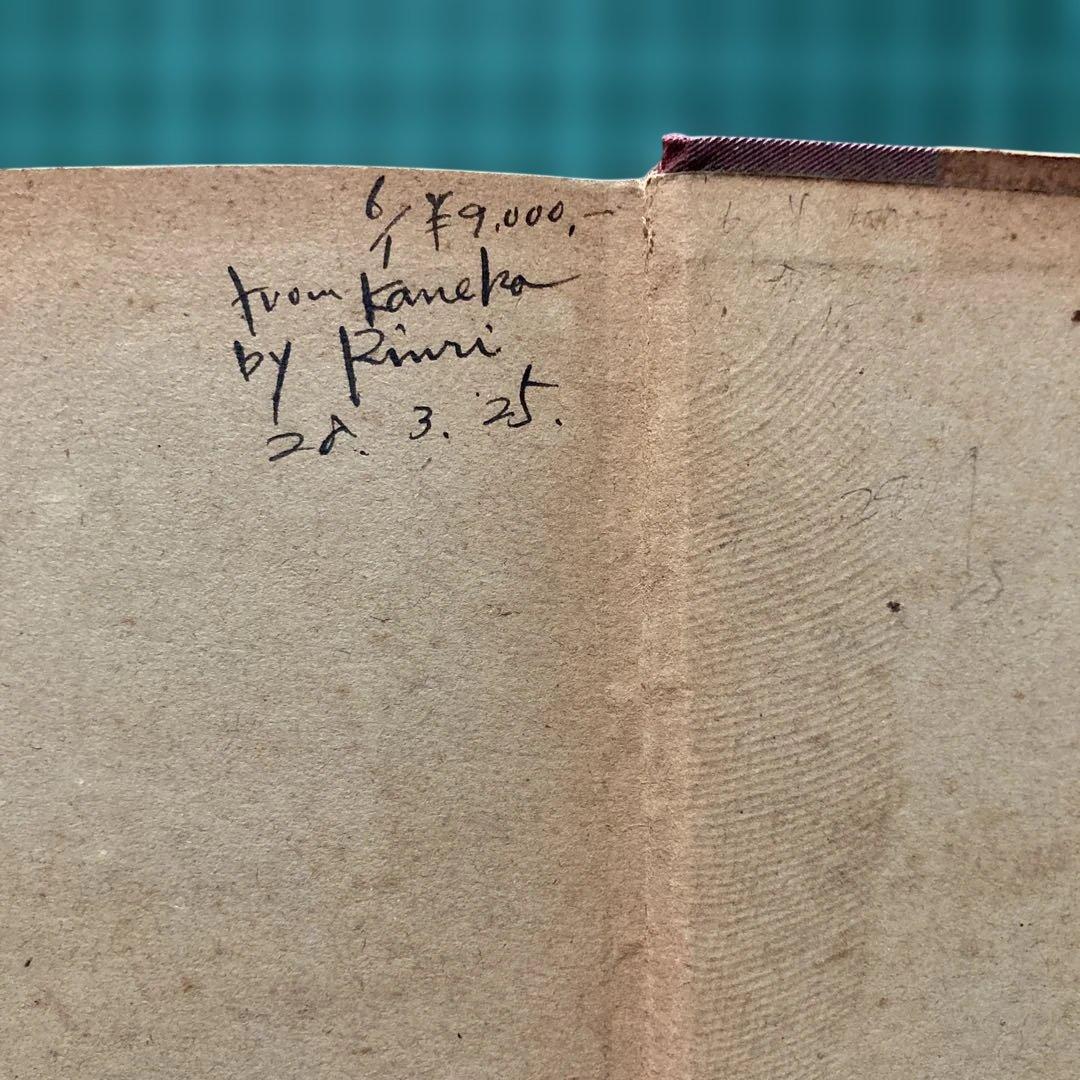 6/1 ¥9.000,-
from Kaneko
by Rinri
28. 3. 25.